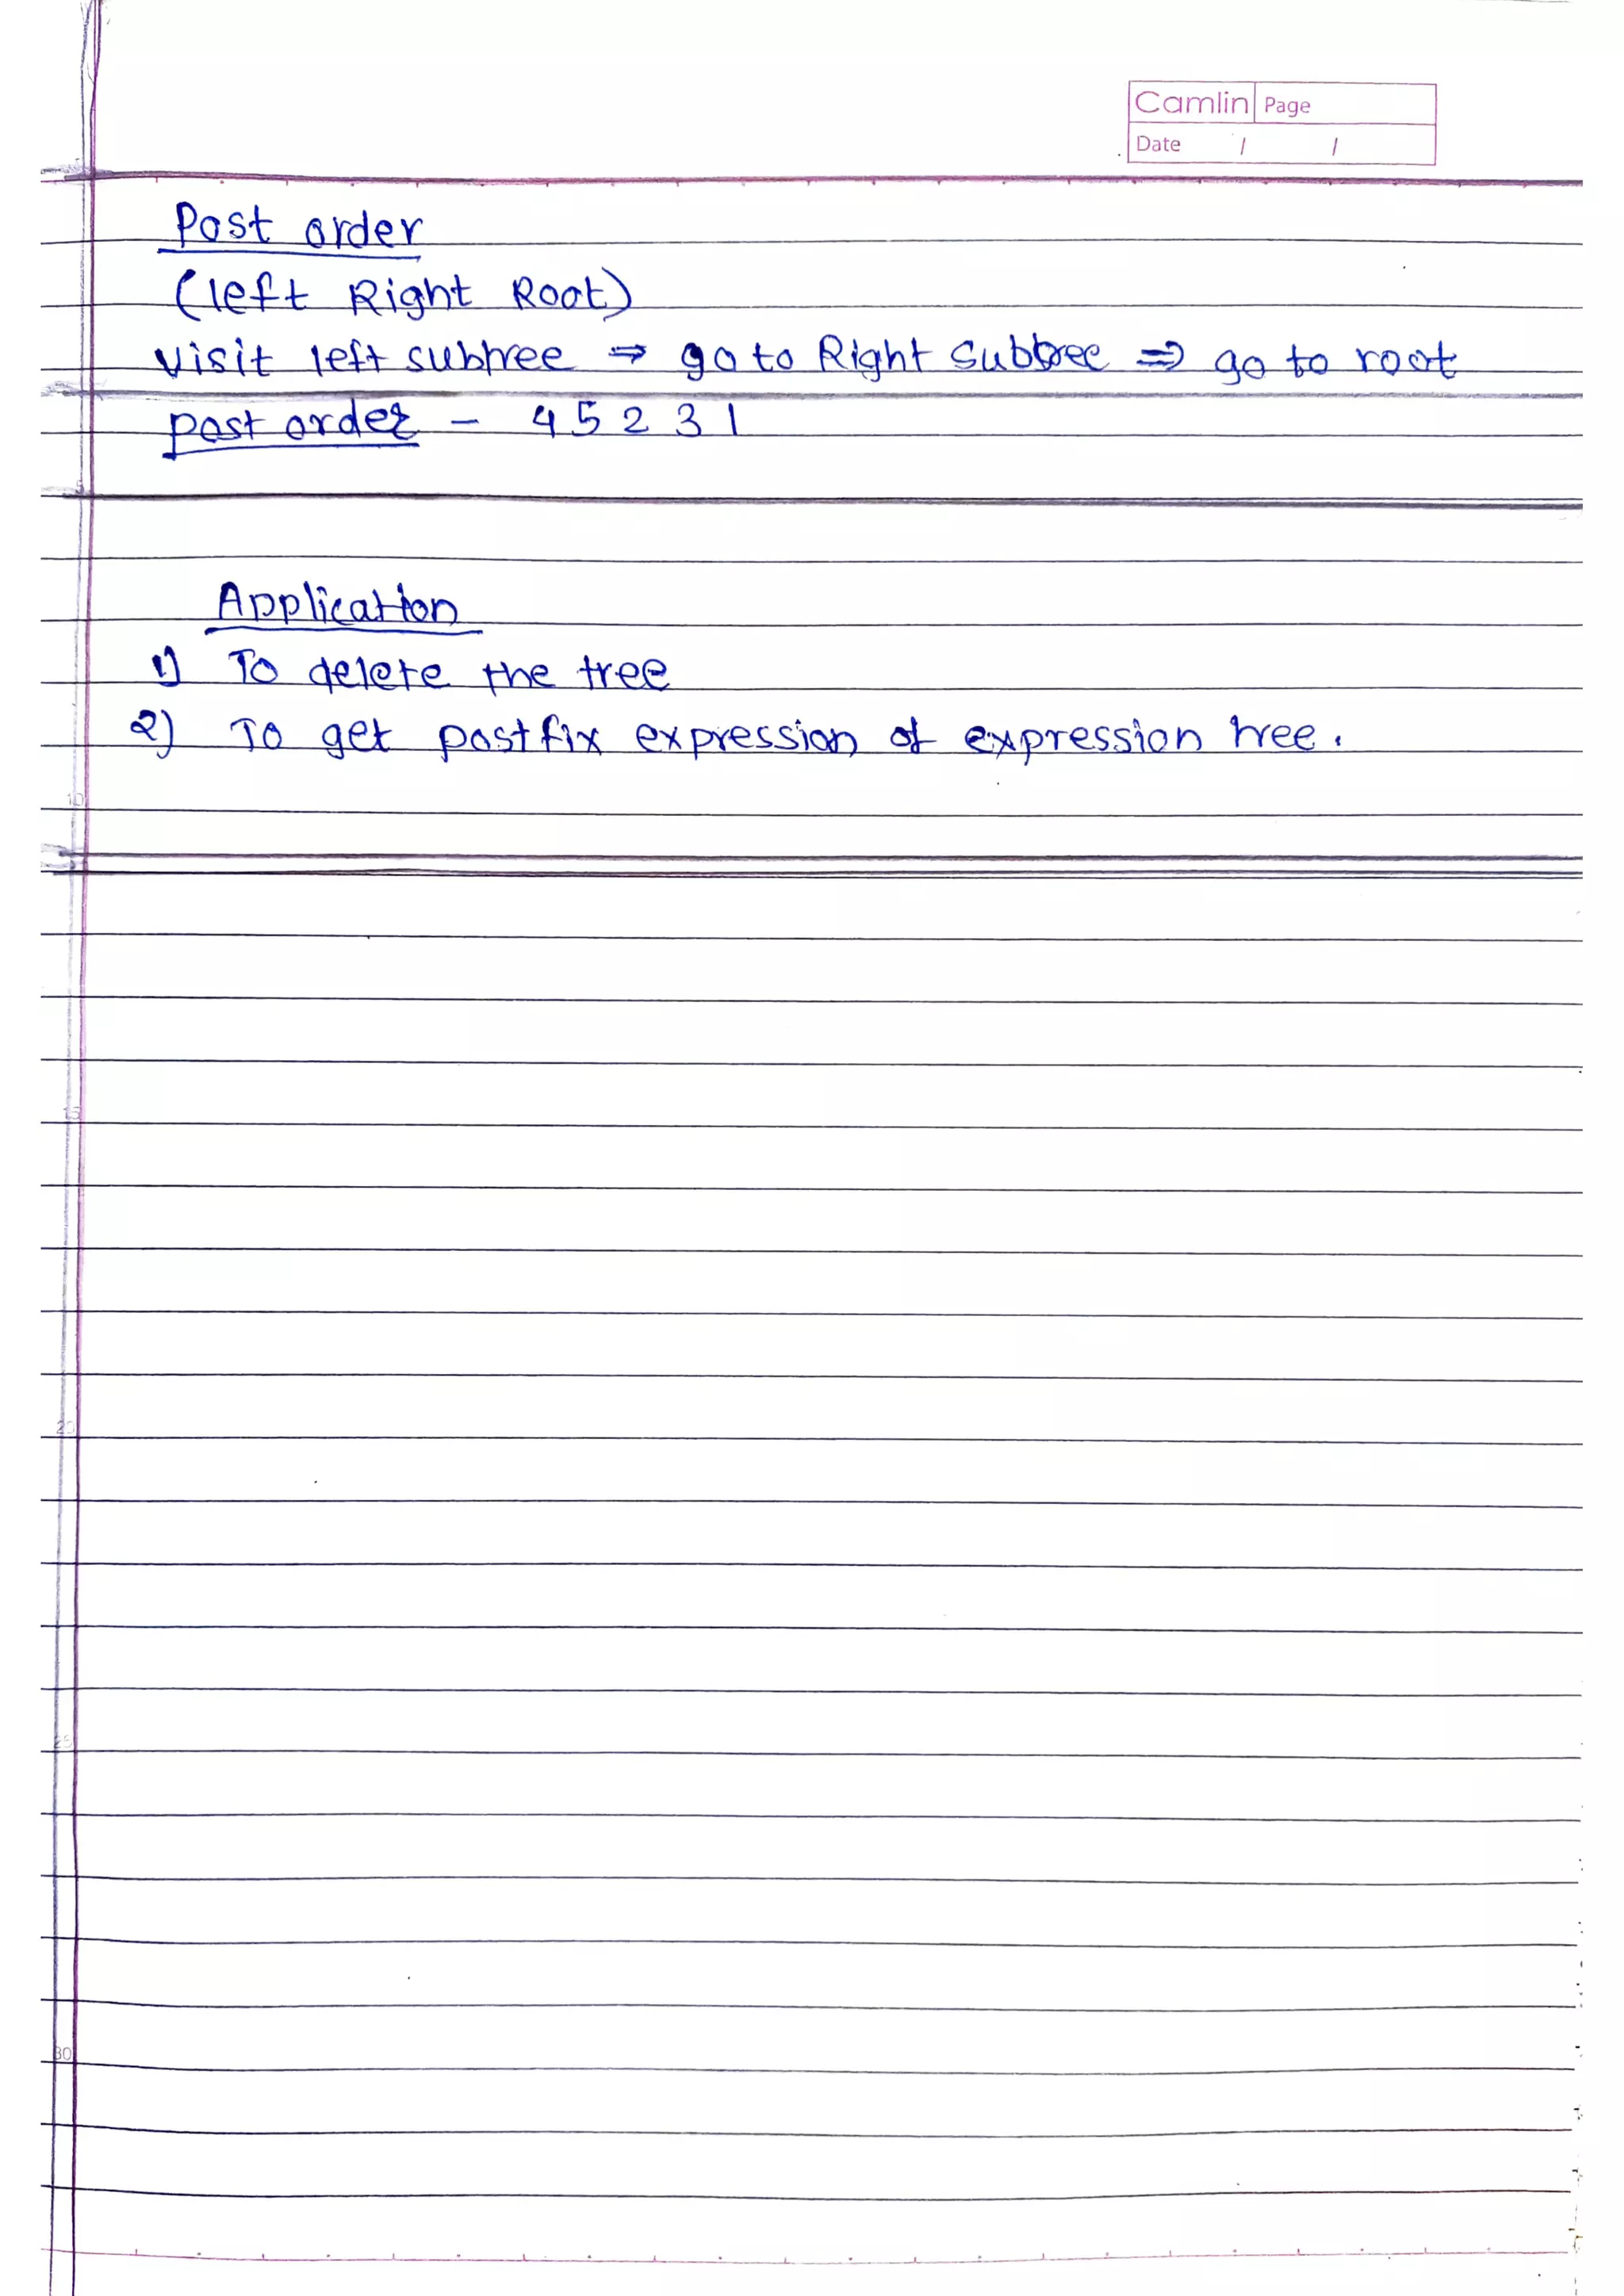 Camlin Page
Date / /
Post order
(left Right Root)
visit left subtree ⇒ go to Right Subtree ⇒ go to root
post order - 4 5 2 3 1
5
Application
1) To delete the tree
2) To get postfix expression of expression tree.
10
15
20
25
30